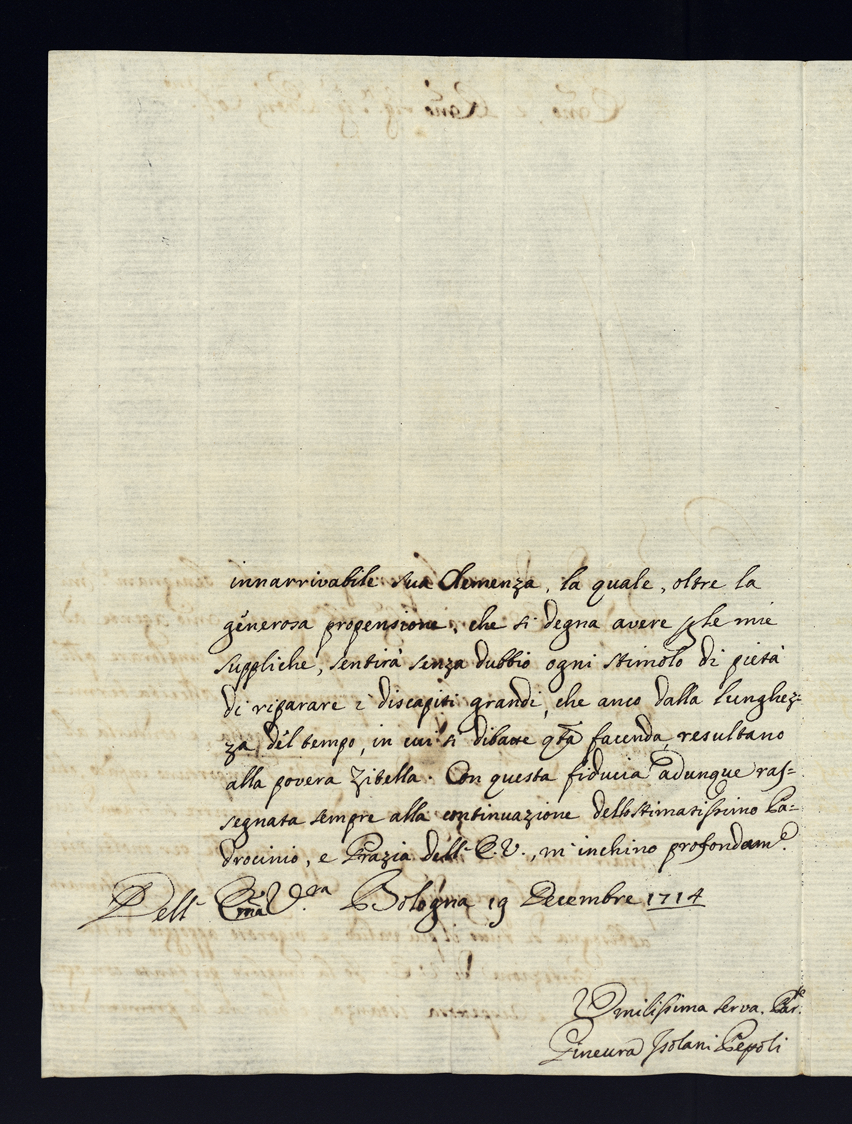 innarrivabile sua Clemenza, la quale, oltre la
generosa propensione, che si degna avere ꝑ le mie
suppliche, sentirà senza dubbio ogni stimolo di pietà
di riparare i discapiti grandi, che anco dalla lunghez-
za del tempo, in cui si dibatte qta facenda, resultano
alla povera Zitella. Con questa fiducia adunque ras-
segnata sempre alla continuazione dello stimatissimo Pa-
drocinio, e Grazia dell' E.V., m'inchino profondam.e
Dell' Emã V.ra Bologna 19 Decembre 1714
Vmilissima serva. Par.
Gineura Isolani Pepoli